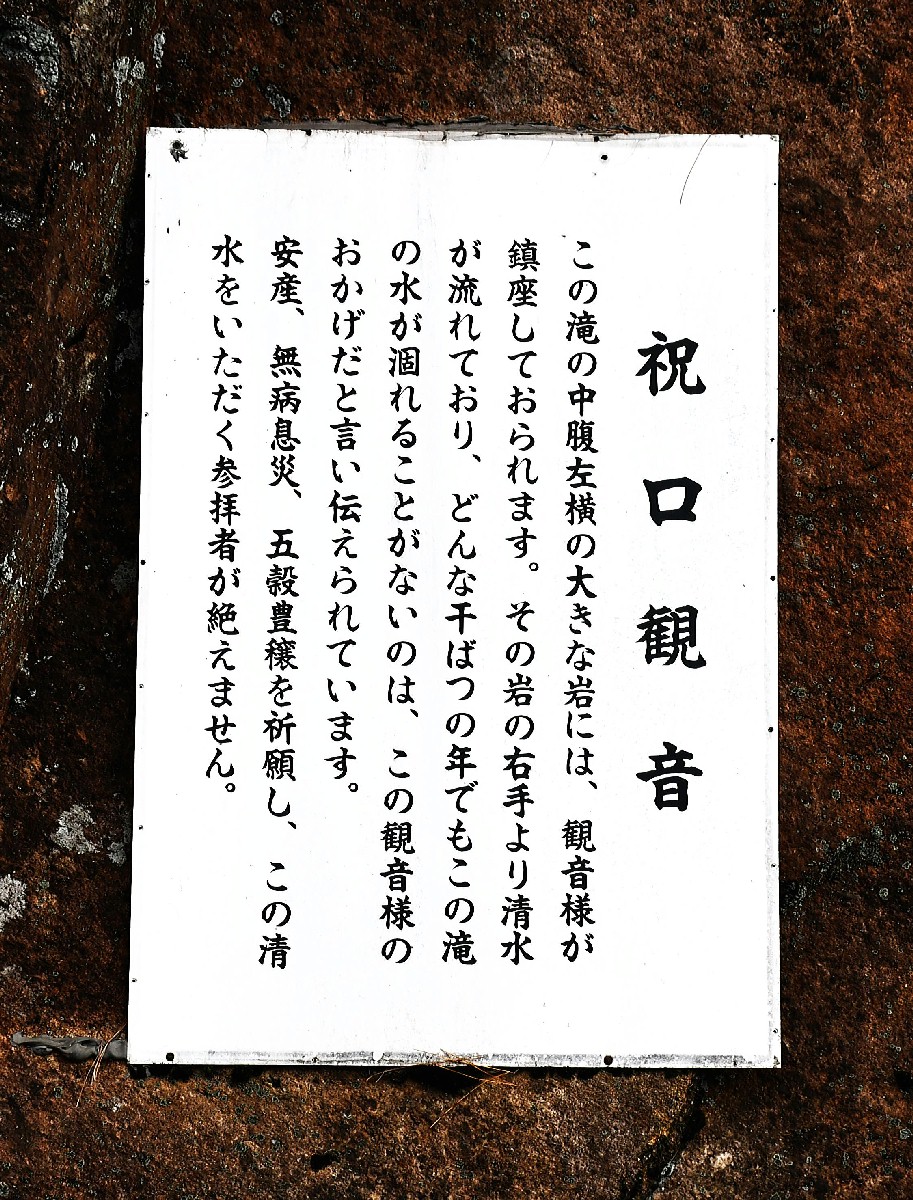 祝口観音
この滝の中腹左横の大きな岩には、観音様が
鎮座しておられます。その岩の右手より清水
が流れており、どんな干ばつの年でもこの滝
の水が涸れることがないのは、この観音様の
おかげだと言い伝えられています。
安産、無病息災、五穀豊穣を祈願し、この清
水をいただく参拝者が絶えません。